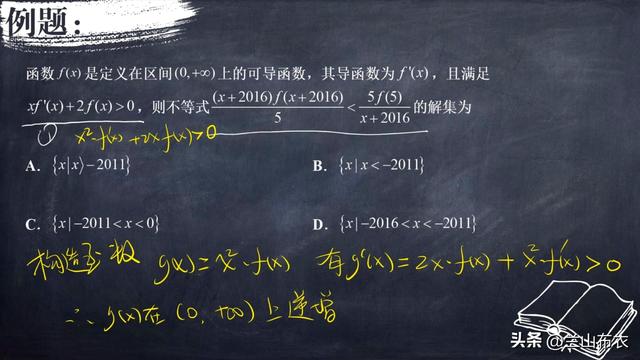 例题：
函数 f(x) 是定义在区间(0,+∞)上的可导函数，其导函数为 f'(x)，且满足
xf'(x)+2f(x)>0，则不等式 (x+2016)f(x+2016)/5 < 5f(5)/(x+2016) 的解集为
① x²·f'(x)+2x·f(x)>0
A. {x|x>-2011} B. {x|x<-2011}
C. {x|-2011<x<0} D. {x|-2016<x<-2011}
构造函数 g(x)=x²·f(x) 有g'(x)=2x·f(x)+x²·f'(x)>0
∴g(x)在(0,+∞)上递增
头条 @堂山布衣